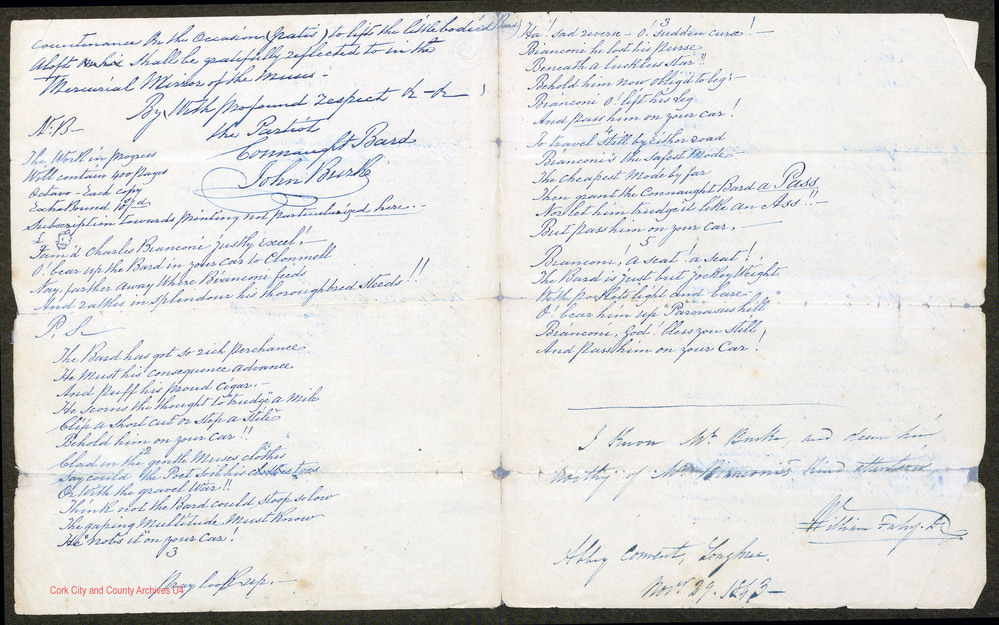 Countenance On the Occasion (gratis) to lift the little bodied Bard
Aloft shall be gratefully reflected to in the
Mercurial Mirror of the Muses -
By With profound respect &-&-
the Patriot
Connaught Bard
John Burke
N.B-
The Work in progress
Will contain 400 Pages
Octavo - Each copy
Extra Bound 10/d
Subscription towards printing not particularized here. -
Fam'd Charles Bianconi justly Excel! -
O! bear up the Bard in your Car to Clonmell
Nay, farther away Where Bianconi feeds
And rattles in splendour his thoroughbred Steeds!!
P. S.-
The Bard has got so rich perchance
He Must his consequence advance
And Puff his proud Cigar. -
He scorns the thought to "trudge" a Mile
Clip a short cut or step a Stile
Behold him on your Car!!
2
Clad in the gentle Muses clothes
Say could the Poet soil his toes
Or With the gravel War!!
Think not the Bard could Stoop so low
The gaping Multitude Must Know
He "nobs it" on your Car!
3
Pray look up. -
Cork City and County Archives U4
3
Ha! sad reverse - O! sudden curse! -
Bianconi he lost his Purse
Beneath a luckless Star!!
Behold him now oblig'd to beg -
Bianconi O! lift his leg
And pass him on your Car!
4
To travel still by either road
Bianconi's the safest Mode
The Cheapest Mode by far
Then grant the Connaught Bard a Pass
Nor let him trudge it like an Ass!! -
But pass him on your Car. -
5
Bianconi, a seat! a seat!!
The Bard is just but jockey Weight
With pockets light and bare -
O! bear him up "Parnassus hill"
Bianconi, God bless you Still!
And Pass him on your Car!
I Know Mr. Burke, and deem him
worthy of Mr. Bianconi's Kind attention
William Fahy
Abbey Convent, Loughrea
Novr. 29. 1843 -